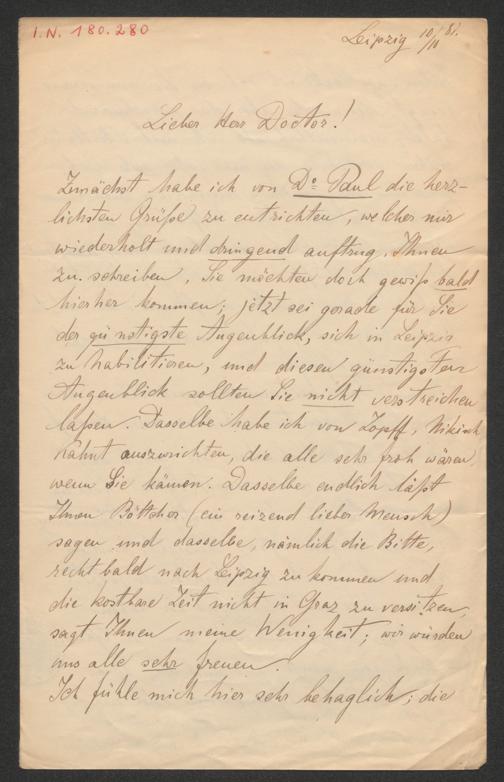 I.N. 180.280
Leipzig 10/11 81.
Lieber Herr Doctor!
Zunächst habe ich von Dr. Paul die herz-
lichsten Grüße zu entrichten, welcher mir
wiederholt und dringend auftrug, Ihnen
zu schreiben, Sie möchten doch gewiß bald
hierher kommen; jetzt sei gerade für Sie
der günstigste Augenblick, sich in Leipzig
zu habilitieren, und diesen günstigsten
Augenblick sollten Sie nicht verstreichen
laßen. Dasselbe habe ich von Zopff, Nikisch
Kahnt auszurichten, die alle sehr froh wären,
wenn Sie kämen. Dasselbe endlich läßt
Ihnen Böttcher (ein reizend lieber Mensch)
sagen und dasselbe, nämlich die Bitte,
recht bald nach Leipzig zu kommen und
die kostbare Zeit nicht in Graz zu versitzen,
sagt Ihnen meine Wenigkeit; wir würden
uns alle sehr freuen.
Ich fühle mich hier sehr behaglich; die